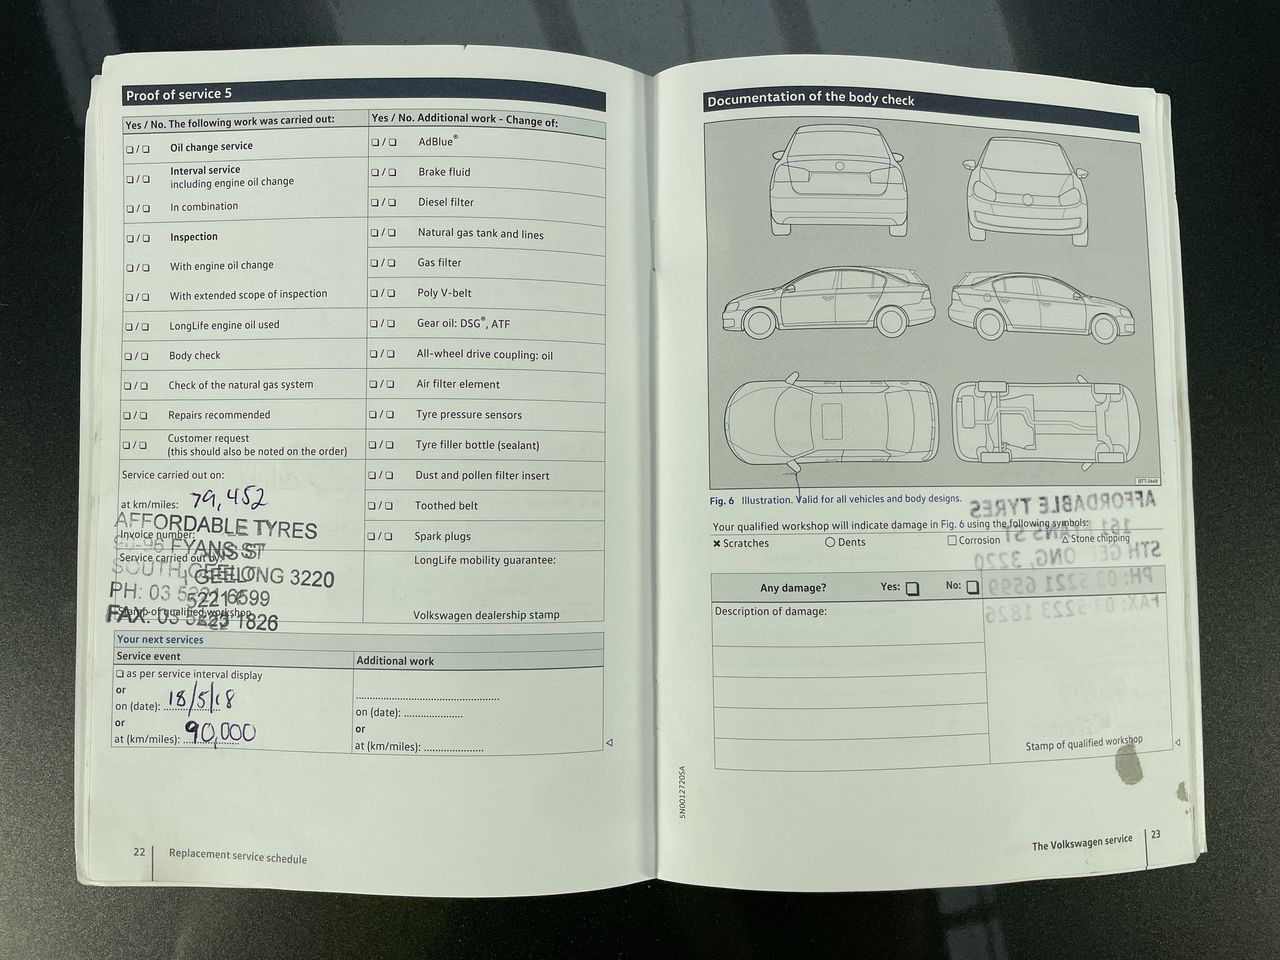 Proof of service 5
Yes / No. The following work was carried out:
❑ / ❑ Oil change service
❑ / ❑ Interval service
including engine oil change
❑ / ❑ In combination
❑ / ❑ Inspection
❑ / ❑ With engine oil change
❑ / ❑ With extended scope of inspection
❑ / ❑ LongLife engine oil used
❑ / ❑ Body check
❑ / ❑ Check of the natural gas system
❑ / ❑ Repairs recommended
❑ / ❑ Customer request
(this should also be noted on the order)
Service carried out on:
at km/miles: 79,452
AFFORDABLE TYRES
Invoice number:
FYANS ST
Service carried out by:
SOUTH GEELONG 3220
PH: 03 5221 6599
Stamp of qualified workshop
FAX: 03 5223 1826
Yes / No. Additional work - Change of:
❑ / ❑ AdBlue®
❑ / ❑ Brake fluid
❑ / ❑ Diesel filter
❑ / ❑ Natural gas tank and lines
❑ / ❑ Gas filter
❑ / ❑ Poly V-belt
❑ / ❑ Gear oil: DSG®, ATF
❑ / ❑ All-wheel drive coupling: oil
❑ / ❑ Air filter element
❑ / ❑ Tyre pressure sensors
❑ / ❑ Tyre filler bottle (sealant)
❑ / ❑ Dust and pollen filter insert
❑ / ❑ Toothed belt
❑ / ❑ Spark plugs
LongLife mobility guarantee:
Volkswagen dealership stamp
Your next services
Service event
❑ as per service interval display
or
on (date): 18/5/18
or
at (km/miles): 90,000
Additional work
on (date): ..................
or
at (km/miles): ..................
22 Replacement service schedule
Documentation of the body check
BTT-0449
Fig. 6 Illustration. Valid for all vehicles and body designs.
Your qualified workshop will indicate damage in Fig. 6 using the following symbols:
✖ Scratches ○ Dents □ Corrosion △ Stone chipping
Any damage? Yes: ❑ No: ❑
Description of damage:
AFFORDABLE TYRES
161 FYANS ST
STH GEELONG, 3220
PH: 03 5221 6599
FAX: 03 5223 1826
Stamp of qualified workshop
5N0012720SA
The Volkswagen service 23